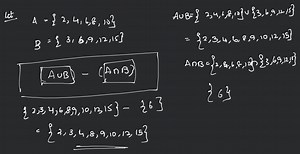 let
A = { 2, 4, 6, 8, 10}
B = { 3, 6, 9, 12, 15}
A∪B − A∩B
{2,3,4,6,8,9,10,12,15} − {6}
= {2, 3, 4, 8, 9, 10, 12, 15}
A∪B = {2,4,6,8,10} ∪ {3,6,9,12,15}
= {2,3,4,6,8,9,10,12,15}
A∩B = {2,4,6,8,10} ∩ {3,6,9,12,15}
{6}